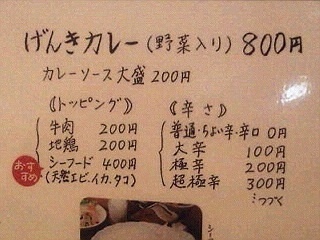 げんきカレー(野菜入り) 800円
カレーソース大盛 200円
《トッピング》
牛肉 200円
地鶏 200円
おすすめ シーフード 400円
(天然エビ、イカ、タコ)
《辛さ》
普通・ちょい辛・辛口 0円
大辛 100円
極辛 200円
超極辛 300円
つづく
シー